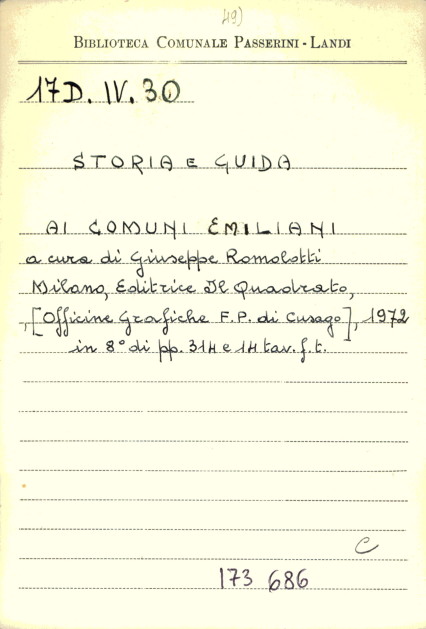 49)
BIBLIOTECA COMUNALE PASSERINI - LANDI
17D. IV. 30
STORIA E GUIDA
AI COMUNI EMILIANI
a cura di Giuseppe Romolotti
Milano, Editrice Il Quadrato,
, [Officine Grafiche F.P. di Cusago], 1972
in 8° di pp. 314 e 14 tav. f. t.
C
173 686